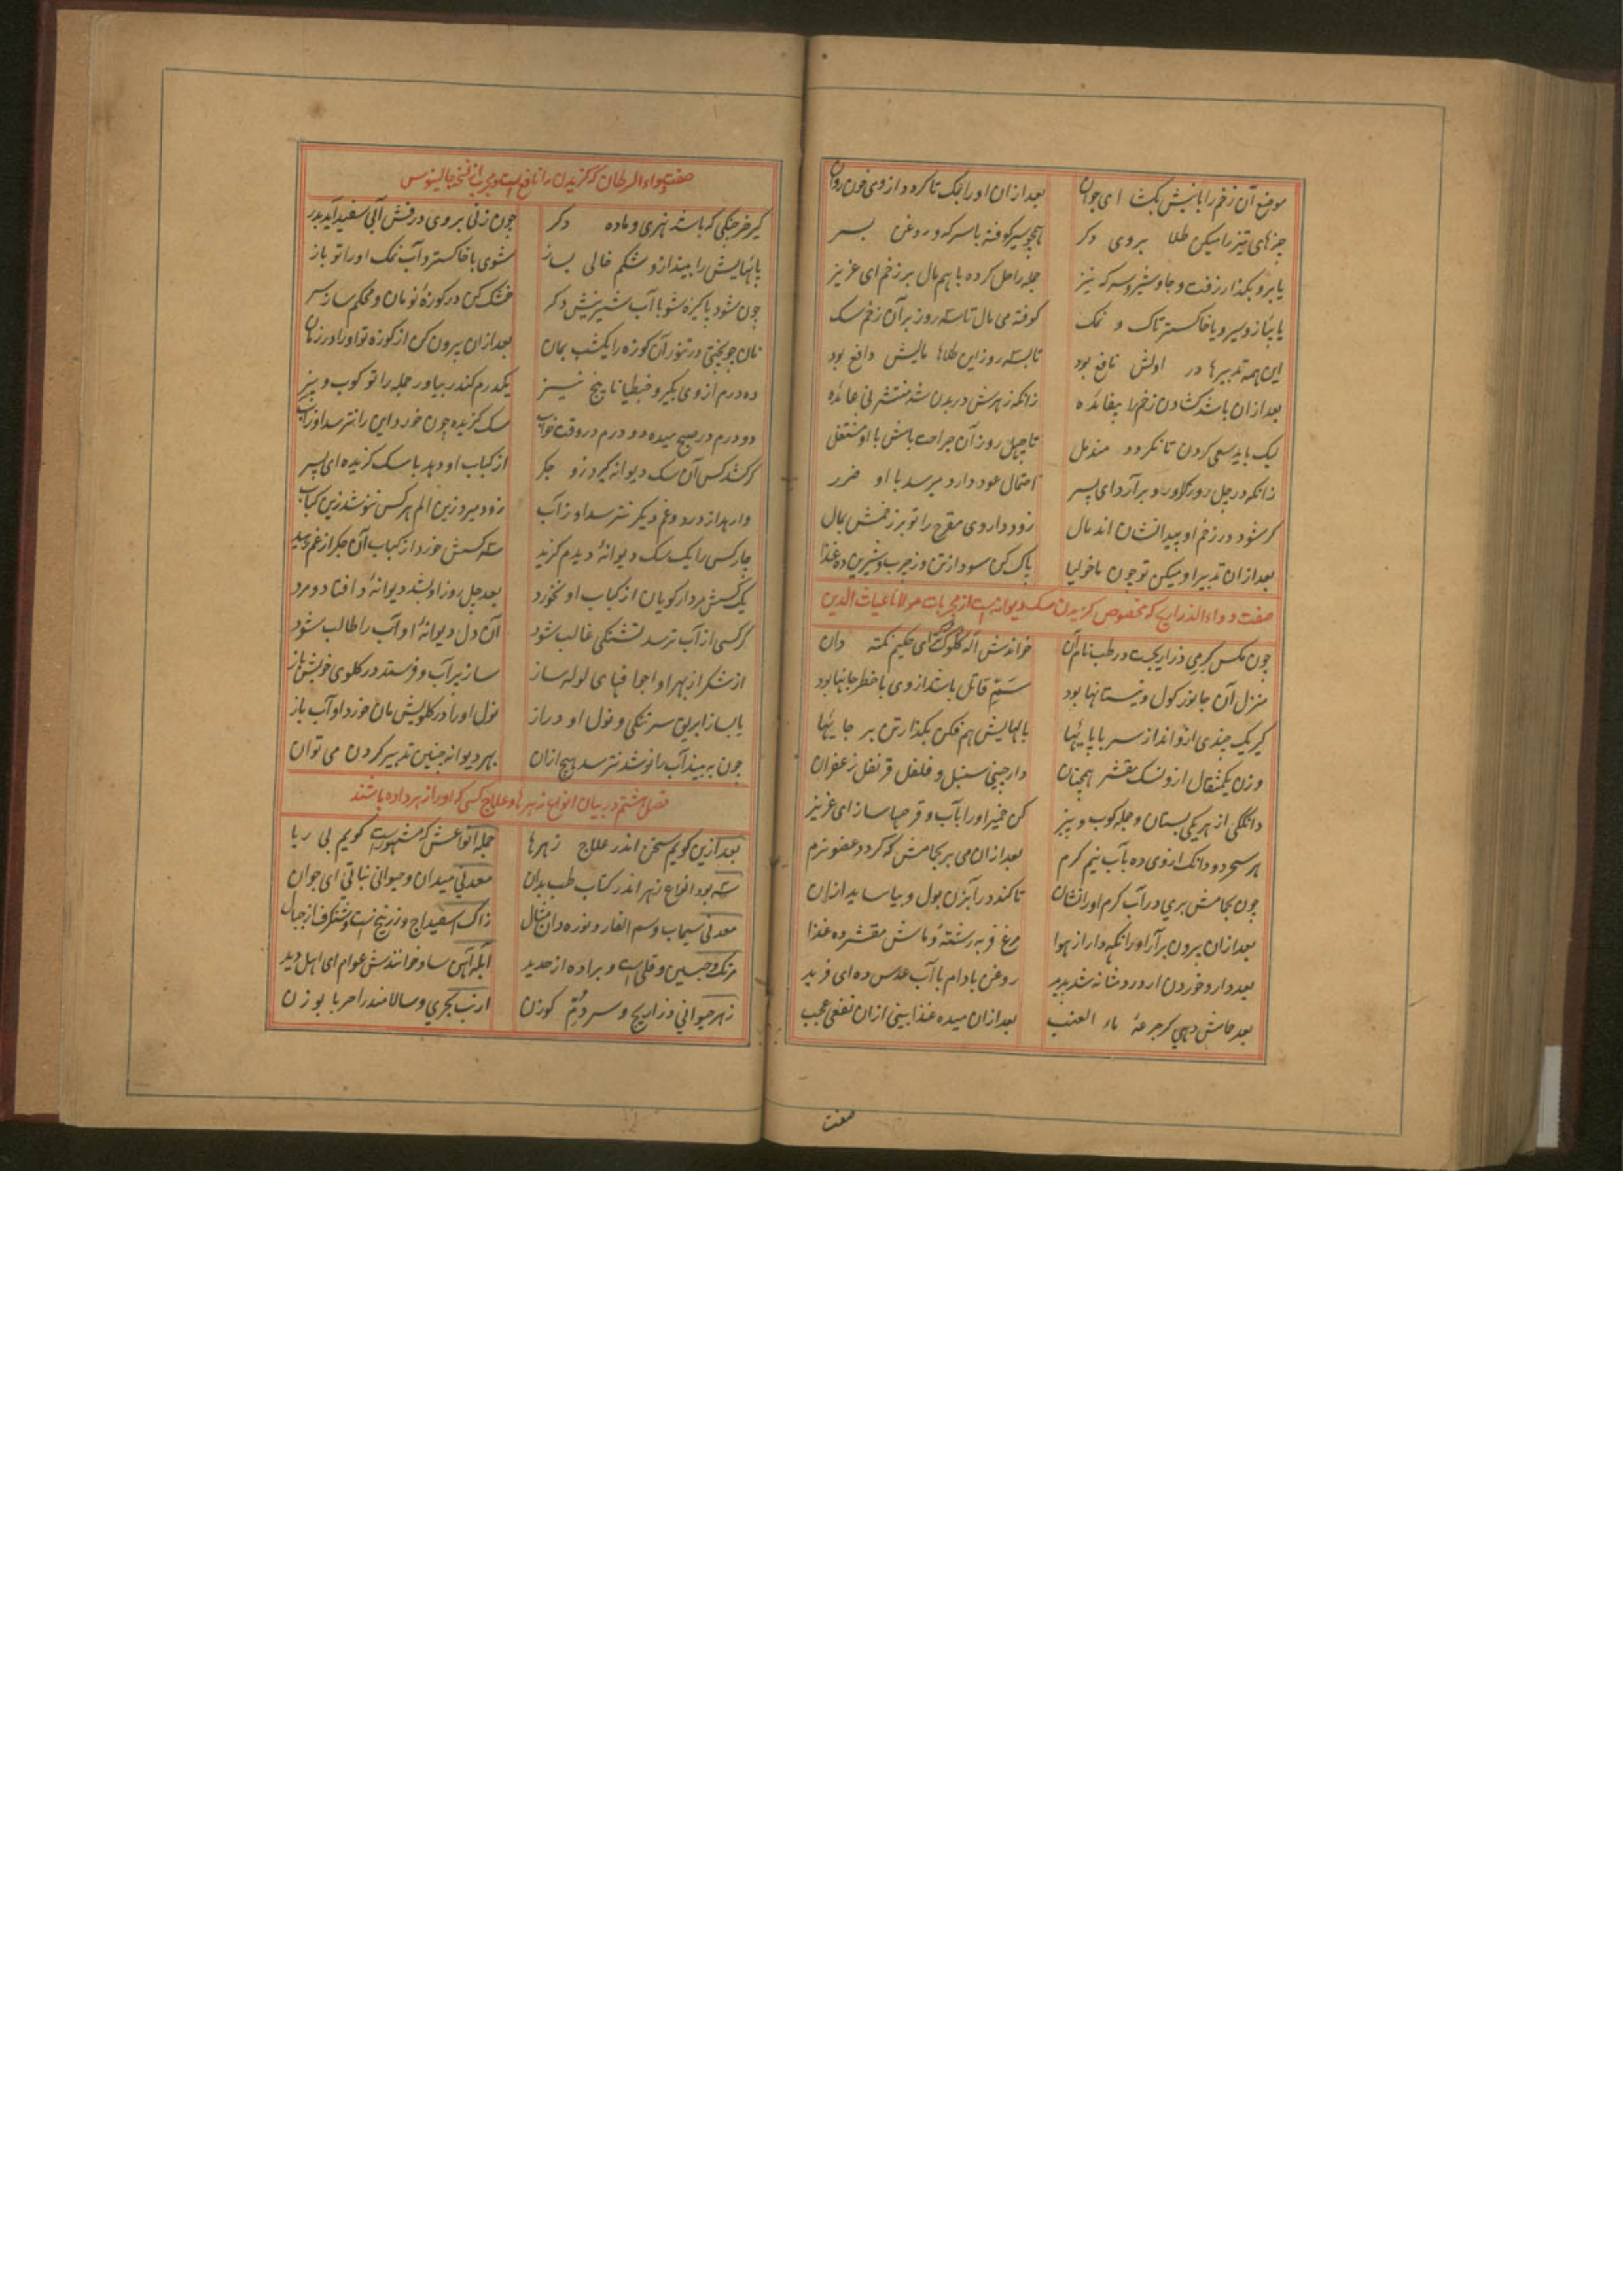 موضع آن زخم را با نیش بکشا ای جوان بعد ازان او را بمک تا کردد از وی خون روان
چیزهای تیز را میکن طلا بروی دکر همچو سیر کوفته با سرکه و روغن بسر
یا برو بکذار زفت و جاوشیر و سرکه نیز جمله را حل کرده با هم مال بر زخم ای عزیز
یا پیاز و سیر و یا خاکستر تاک و نمک کوفته می مال تا سه روز بر آن زخم سک
این همه تدبیرها در اولش نافع بود تا بسه روز این طلاها مالیش دافع بود
بعد ازان باشد کشادن زخم را بیفائده زانکه زهرش در بدن شد منتشر نی عائده
لیک باید سعی کردن تا نکردد مندمل تا چهل روز آن جراحت باش با او مشتغل
زانکه در چل روز کاورد و برآرد ای پسر احتمال عود دارد میرسد با او ضرر
کر شود در زخم او پیدا نشان اندمال زود داروی مقرح را تو بر زخمش بمال
بعد ازان تدبیر او میکن تو چون ماخولیا پاک کن سودا ز تن وز چرب و شیرین ده غذا
صفت دواء الذراریح که مخصوص کزیدن سک دیوانه است از مجربات مولانا غیاث الدین
چون مکس کرمی ذراریحست در طب نام آن خواندش آله کلوک ای حکیم نکته دان
منزل آن جانور کول و نیستانها بود سَمِّ قاتل باشد از وی با خطر جانها بود
کیر یک چندی ازو انداز سر با پایها بالهایش هم فکن بکذار تن بر جایها
وزن یکمثقال ازو نسک مقشر همچنان دارچینی سنبل و فلفل قرنفل زعفران
دانکی از هر یکی بستان و جمله کوب و بیز کن خمیر او را بآب و قرصها ساز ای عزیز
هر سحر دو دانک از وی ده بآب نیم کرم بعد ازان می بر بحمامش که کردد عضو نرم
چون بحمامش بری در آب کرم او را نشان تا کند در آبزن بول و بیاساید ازان
بعد ازان بیرون برآر او را نکه دار از هوا مرغ فربه رشتهٔ و ماش مقشر ده غذا
بعد دارو خوردن ار درد مثانه شد پدید روغن بادام با آب عدس ده ای فرید
بعد حامش دهی کر جرعهٔ ماء العنب بعد ازان میده غذا بینی ازان نفعی عجب
صفت
صفت دواء السرطان که کزیدن را نافع است و مجرب از نسخه جالینوس
کیر خرچنکی که باشد نهری و ماده دکر چون زنی بر وی درفش آبی سفید آید بدر
پایهایش را بینداز و شکم خالی بساز شوی با خاکستر و آب نمک او را تو باز
چون شود پاکیزه شو با آب شیرینش دکر خشک کن در کوزهٔ نو مان و محکم ساز سر
نان چو پختی در تنور آن کوزه را یکشب بمان بعد ازان بیرون کن از کوزه تو او را در زمان
ده درم از وی بکیر و جنطیانا پنج نیز یکدرم کندر بیاور جمله را تو کوب و بیز
دو درم در صبح میده دو درم در وقت خواب سک کزیده چون خورد این را نترسد او ز آب
کر کشد کس آن سک دیوانه کیرد زو جکر از کباب او دهد با سک کزیده ای پسر
وارهد از درد و غم دیکر نترسد او ز آب زود میرد زین الم هر کس ننوشد زین کباب
چار کس را یک سک دیوانهٔ دیدم کزید سه کسش خورد از کباب آن جکر از غم رهید
یک کسش مردار کویان از کباب او نخورد بعد چل روز او بشد دیوانهٔ و افتاد و مرد
کر کسی از آب ترسد تشنکی غالب شود آن دل دیوانهٔ او آب را طالب شود
از شکر از بهر او اجا قبای لوله ساز ساز پر آب و فرستد در کلوی خویش باز
یا بساز ابریق سر تنکی و نول او دراز نول او را در کلویش مان خورد او آب باز
چون نه بیند آب را نوشد نترسد هیچ ازان بهر دیوانه چنین تدبیر کردن می توان
فصل هشتم در بیان انواع زهرها و علاج کسی که او را زهر داده باشند
بعد ازین کویم سخن اندر علاج زهرها جمله انواعش که مشهورست کویم بی ریا
سه بود انواع زهر اندر کتاب طب بدان معدنی میدان و حیوانی نباتی ای جوان
معدنی سیماب و سم الفار و نوره دان مثال زاک اسفیداج و زرنیخست و شنکرف از جبال
مرتک و جبسین و قلی است و براده از حدید آبکه آهن ساد خوانندش عوام ای اهل دید
زهر حیوانی ذراریح و سر دُمِّ کوزن ارنب بحری و سالامندرا حربا بوزن